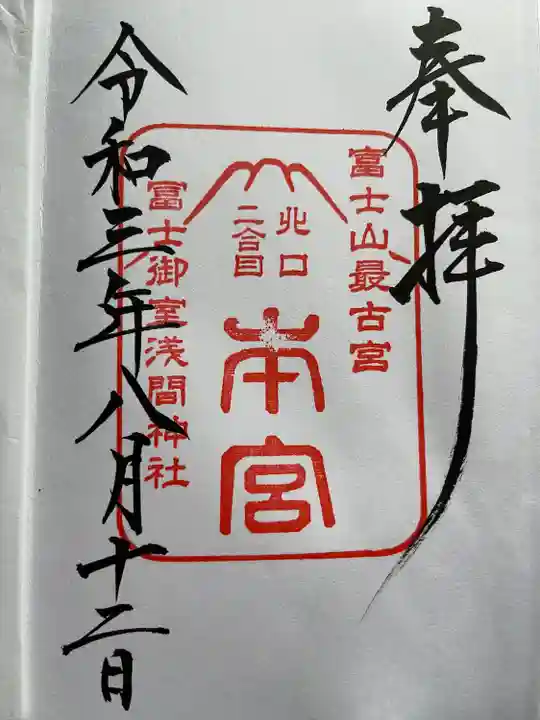 奉拝
富士山最古宮
北口
二合目
本宮
冨士御室浅間神社
令和三年八月十二日